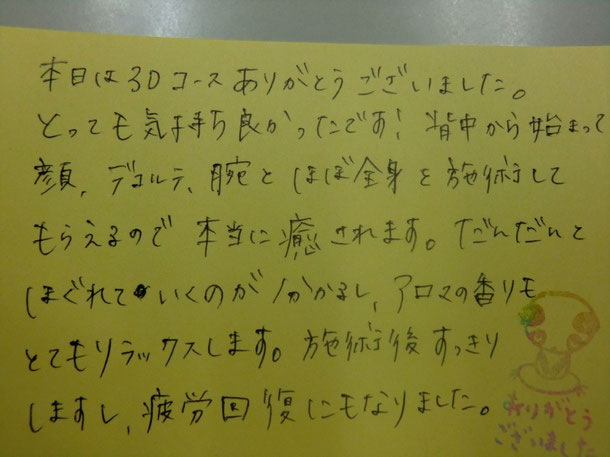 本日は3Dコースありがとうございました。
とっても気持ち良かったです！背中から始まって
顔、デコルテ、腕とほぼ全身を施術して
もらえるので本当に癒されます。だんだんと
ほぐれていくのが分かるし、アロマの香りも
とてもリラックスします。施術後すっきり
しますし、疲労回復にもなりました。
ありがとう
ございました